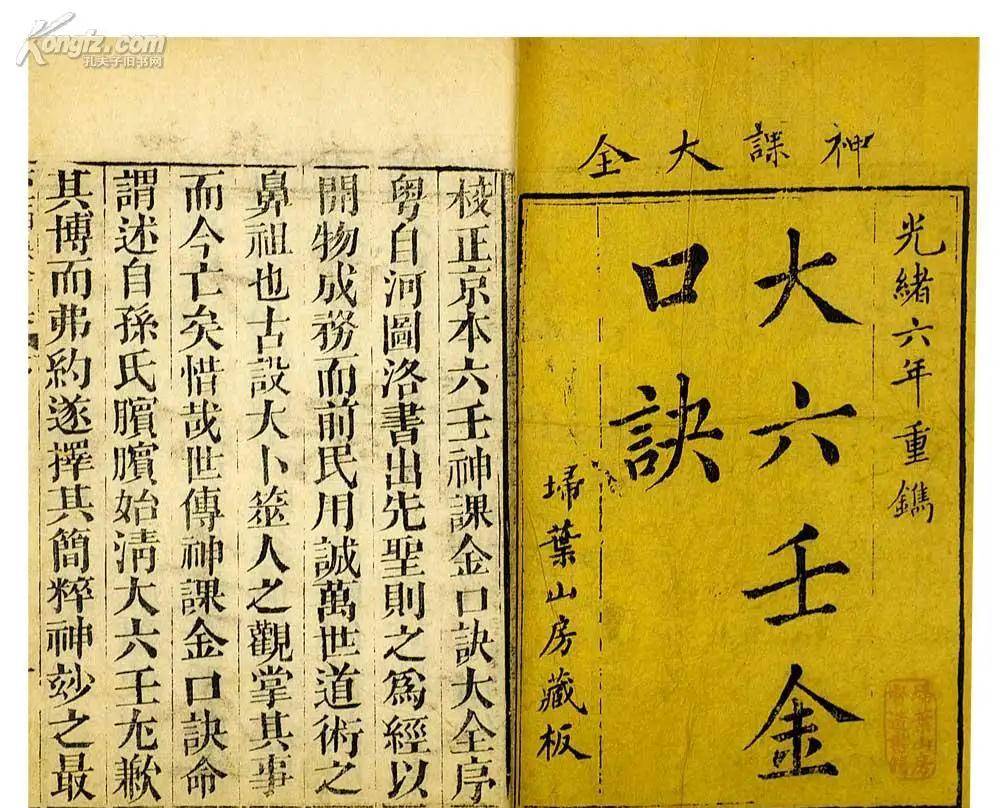 Kongfz.com
孔夫子旧书网
神課大全
光緒六年重鐫
大六壬金
口訣
埽葉山房藏板
校正京本六壬神課金口訣大全序
粵自河圖洛書出先聖則之爲經以
開物成務而前民用誠萬世道術之
鼻祖也古設大卜筮人之觀掌其事
而今亡矣惜哉世傳神課金口訣命
謂述自孫氏臏臏始淸大六壬尢歉
其博而弗約遂擇其簡粹神玅之最